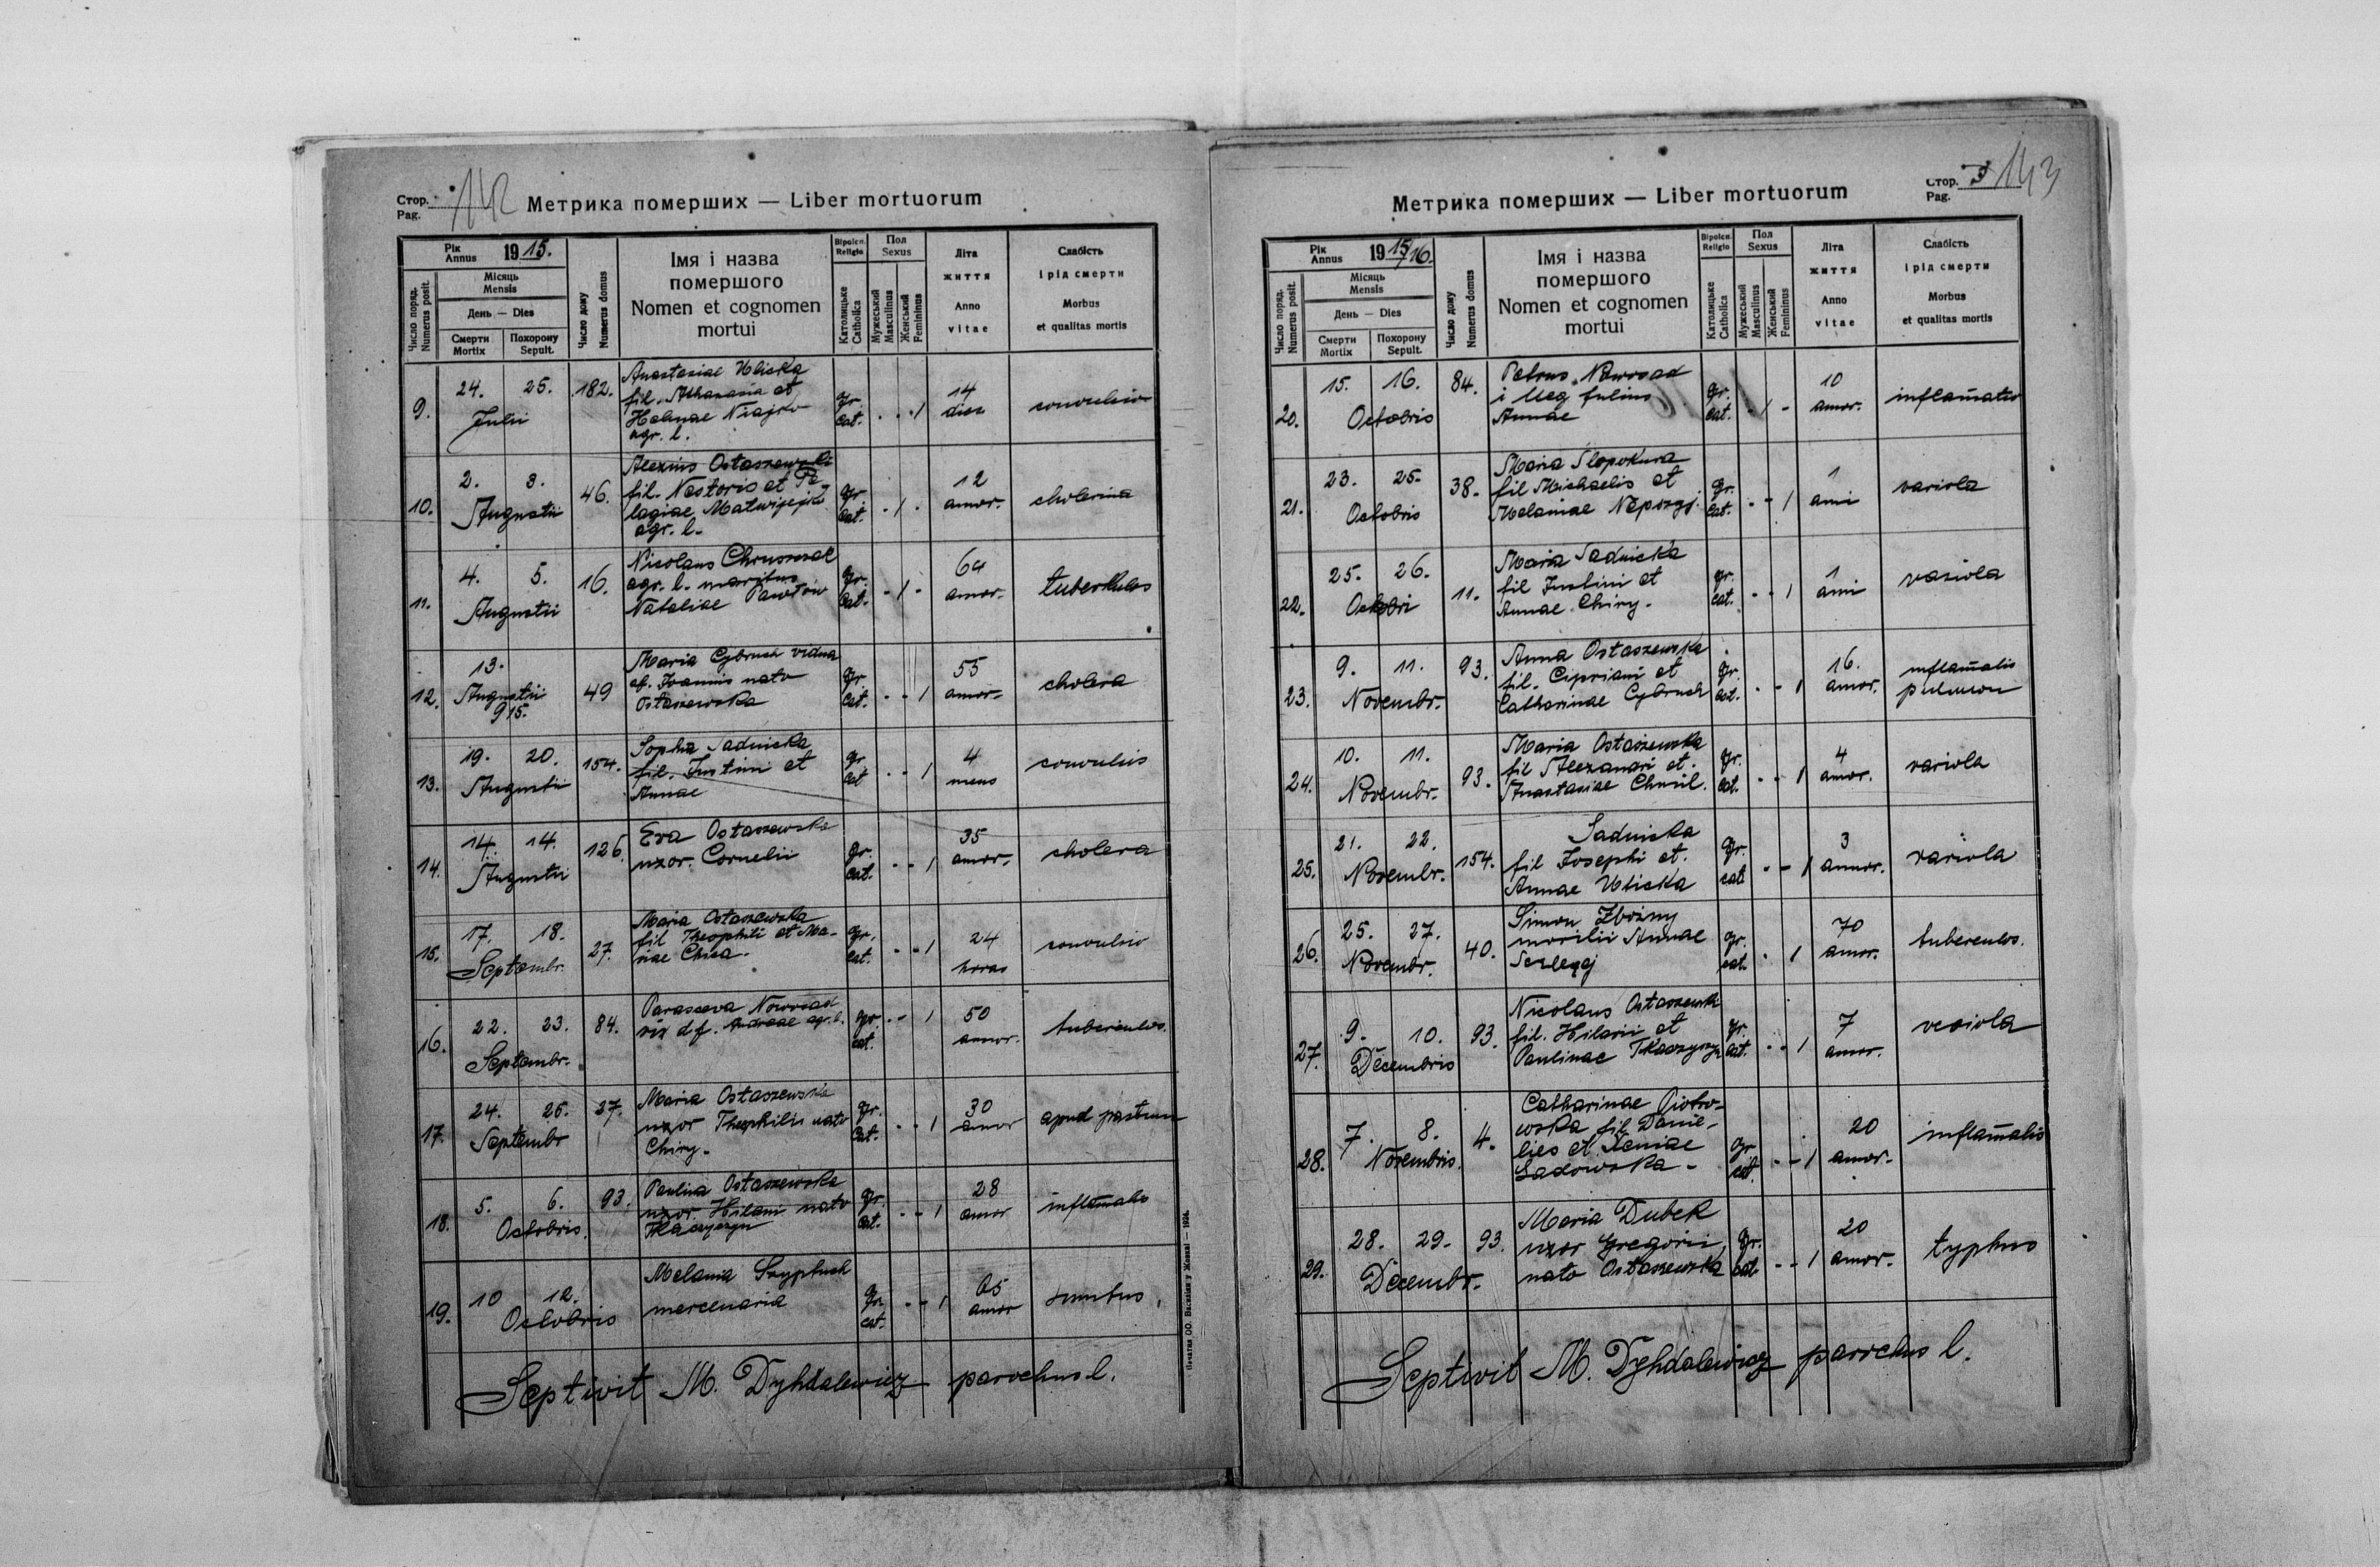 Стор. Pag. 142
Метрика померших — Liber mortuorum
Рік Annus 1915.
Місяць Mensis
День — Dies
Смерти Mortix
Похорону Sepult.
Число поряд. Numerus posit.
Число дому Numerus domus
Імя і назва
помершого
Nomen et cognomen
mortui
Віроісп. Religio
Католицьке Catholica
Пол Sexus
Мужеський Masculinus
Женський Femininus
Літа
життя
Anno
vitae
Слабість
і рід смерти
Morbus
et qualitas mortis
9. 24. 25. Julii 182. Anastasiae Uliska
fil. Athanasia et
Helenae
agr. l.
gr. cat. 1 14 dies
10. 2. 3. Augustii 46. Alexius Ostaszewski
fil. Nestoris et Pe-
lagiae
agr. l.
gr. cat. 1 12 annor. cholerina
11. 4. 5. Augustii 16. Nicolaus
agr. l. maritus
Nataliae Pawłow
gr. cat. 1 64 annor. tuberkulos
12. 13. Augustii 915. 49 Maria Cybruch vidua
af. Joannis nato
Ostaszewska
gr. cat. 1 55 annor. cholera
13. 19. 20. Augusti 154. Sophia Sadnicka
fil. Justini et
Annae
gr. cat 1 4 mens
14. 14. 14. Augusti 126. Eva Ostaszewska
uxor. Cornelii
gr. cat. 1 35 annor. cholera
15. 17. 18. Septembr. 27. Maria Ostaszewska
fil Theophili et Ma-
riae
gr. cat. 1 24 horas
16. 22. 23. Septembr. 84. Parasceva Nowosad
df. Andreae agr. l.
gr. cat. 1 50 annor. tuberculos.
17. 24. 26. Septembr 27. Maria Ostaszewska
uxor Theophilis nato
Chiry.
gr. cat. 1 30 apud partum
18. 5. 6. Octobris. 93. Paulina Ostaszewska
uxor. Hilarii nato
Tkaczyszyn
gr. cat. 1 28 annor
19. 10 12. Octobris Melania
mercenaria
gr. cat. 1 65 annor
Septivit M. Dyhdalewicz parochus l.
Печатня ОО. Василіян у Жовкві — 1924.
Метрика померших — Liber mortuorum
Стор. Pag. 3 143
Рік Annus 1915/16.
Місяць Mensis
День — Dies
Смерти Mortix
Похорону Sepult.
Число поряд. Numerus posit.
Число дому Numerus domus
Імя і назва
помершого
Nomen et cognomen
mortui
Віроісп. Religio
Католицьке Catholica
Пол Sexus
Мужеський Masculinus
Женський Femininus
Літа
життя
Anno
vitae
Слабість
і рід смерти
Morbus
et qualitas mortis
20. 15. 16. Octobris 84. Petrus Nowosad
Annae
gr. cat. 1 10 annor. inflamatio
21. 23. 25. Octobris 38. Maria Slopokura
fil Michaelis et
Melaniae
gr. cat. 1 1 variola
22. 25. 26. 11. Maria Sadnicka
fil Justini et
Annae Chiry.
gr. cat. 1 1 variola
23. 9. 11. Novembr. 93. Anna Ostaszewska
fil. Cipriani et
Catharinae Cybruch
gr. cat. 1 16. annor.
24. 10. 11. Novembr. 93. Maria Ostaszewska
fil Alexandri et.
Anastasiae
gr. cat. 1 4 annor. variola
25. 21. 22. Novembr. 154. Sadnicka
fil Josephi et.
Annae Uliska
gr. cat 1 3 annor. variola
26. 25. 27. Novembr. 40. Simon Zbożny
Annae
gr. cat. 1 70 annor. tuberculos.
27. 9. 10. Decembris 93. Nicolaus Ostaszewski
fil. Hilarii et
Paulinae
gr. cat. 1 7 annor.
28. 7. 8. Novembris. 4. Catharinae Piotro-
wska fil Danie-
lies et Xeniae
Sadowska -
gr cat. 1 20 annor.
29. 28. 29. Decembr. 93. Maria Dubek
uxor Gregorii,
nato Ostaszewska
gr. cat 1 20 annor. typhus
Septivit M. Dyhdalewicz parochus l.